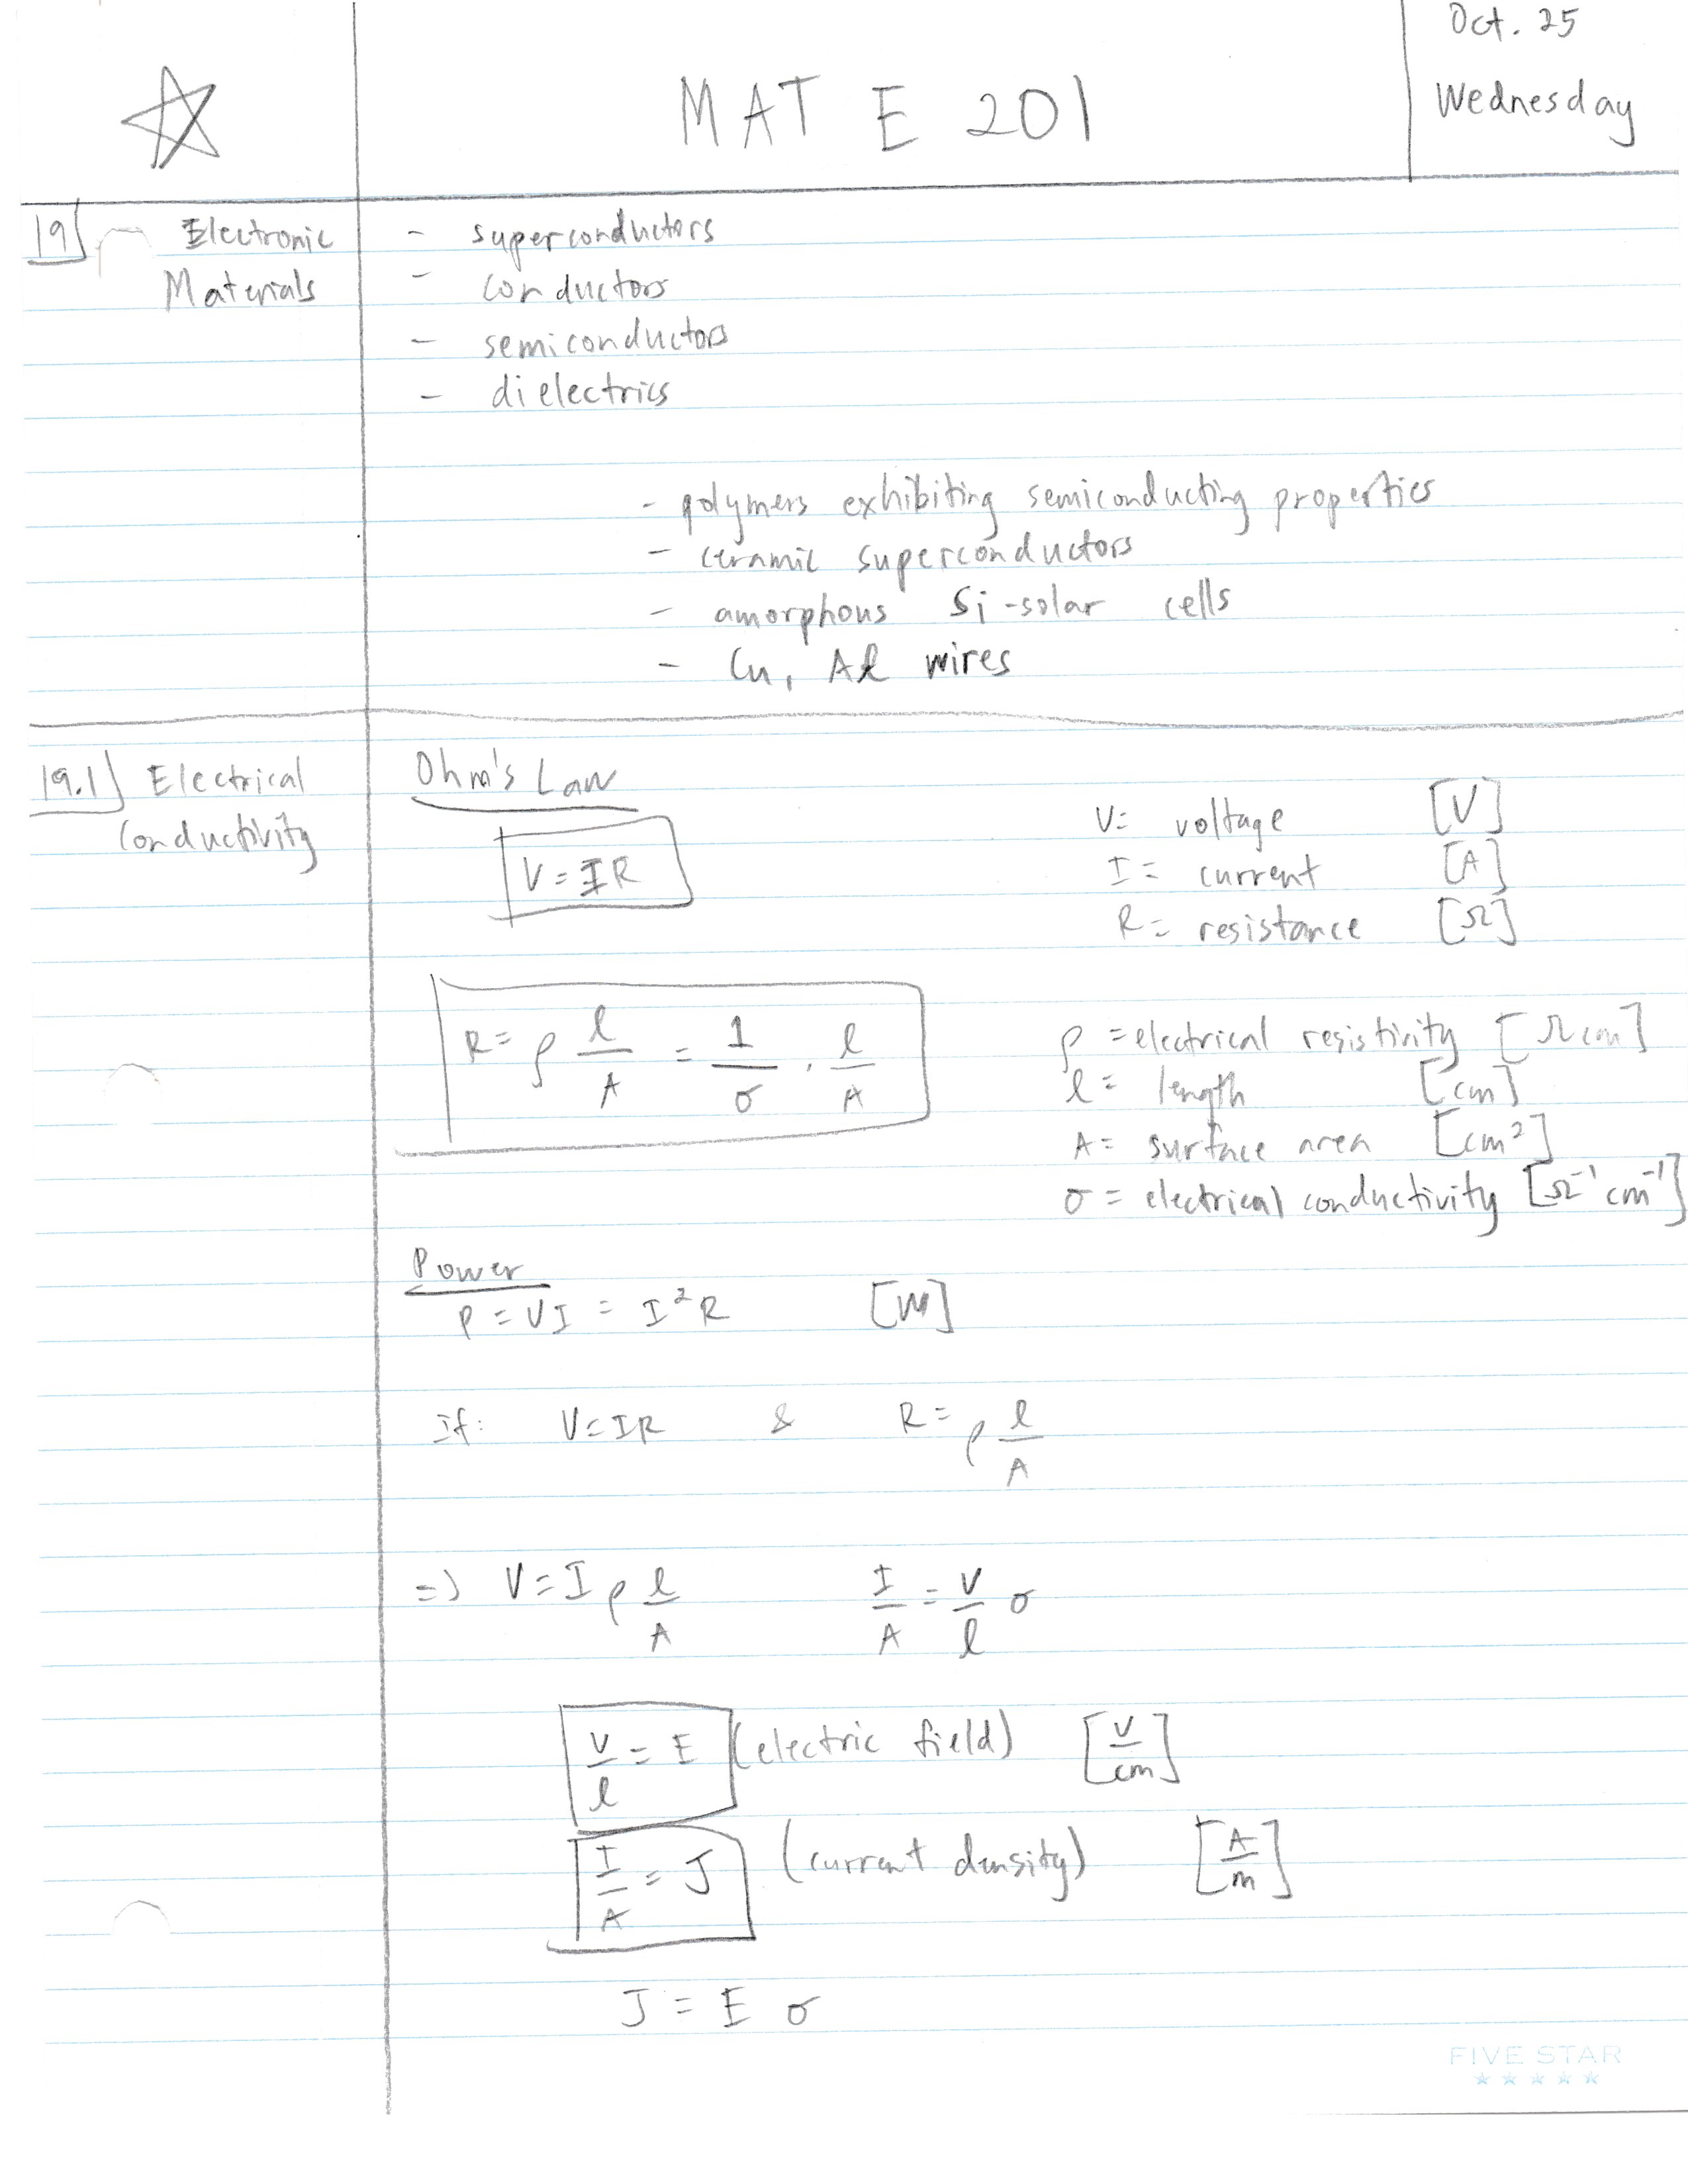 Oct. 25
Wednesday
MAT E 201
19) Electronic Materials
- superconductors
- conductors
- semiconductors
- dielectrics
- polymers exhibiting semiconducting properties
- ceramic superconductors
- amorphous Si-solar cells
- Cu, Al wires
19.1) Electrical Conductivity
Ohm's Law
V = IR
V = voltage [V]
I = current [A]
R = resistance [Ω]
R = ρ l/A = 1/σ · l/A
ρ = electrical resistivity [Ω cm]
l = length [cm]
A = surface area [cm²]
σ = electrical conductivity [Ω⁻¹ cm⁻¹]
Power
P = VI = I²R [W]
If: V = IR & R = ρ l/A
=> V = I ρ l/A I/A = V/l σ
V/l = E (electric field) [V/cm]
I/A = J (current density) [A/m]
J = E σ
FIVE STAR